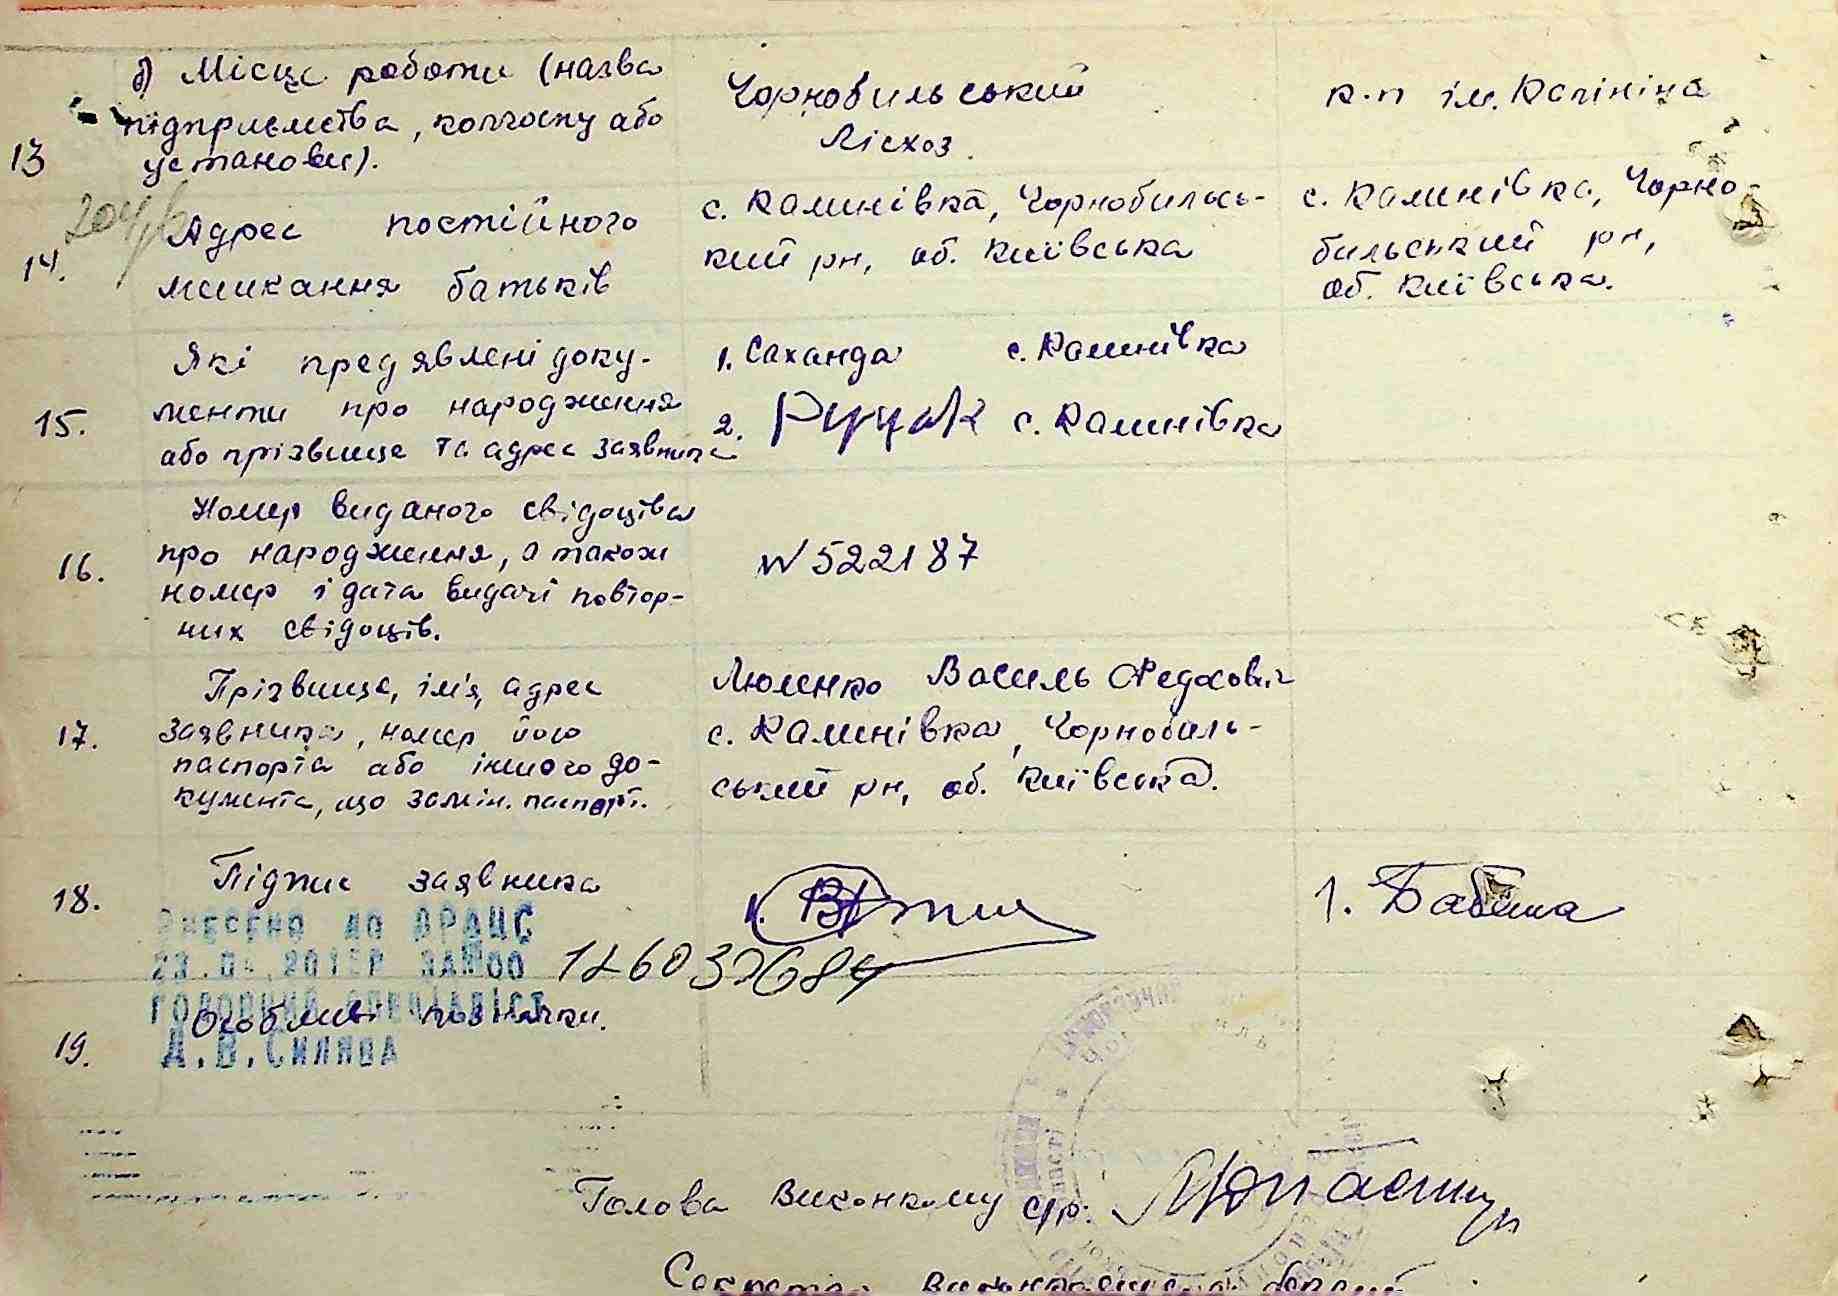 б) Місце роботи (назва
підприємства, колгоспу або
установи).
13
Чорнобильський
Лісхоз
к-п ім. Калініна
14.
Адрес постійного
мешкання батьків
с. Калинівка, Чорнобильсь-
кий рн, об. Київська
с. Калинівка, Чорно
бильський рн,
об. Київська.
15.
Які предявлені доку-
менти про народження
або прізвище та адрес заявника
1. Саханда с. Калинівка
2. с. Калинівка
16.
Номер виданого свідоцтва
про народження, а також
номер і дата видачі повтор-
них свідоців.
N 522187
17.
Прізвище, ім'я, адрес
заявника, номер його
паспорта або іншого до-
кумента, що замін. паспорт.
Люленко Василь Федосович
с. Калинівка, Чорнобиль-
ський рн, об. Київська.
18.
Підпис заявника
1. Бабина
ВНЕСЕНО ДО ДРАЦС
ГОЛОВНИЙ СПЕЦІАЛІСТ
19.
Особливі позначки.
Голова Виконкому с/р.